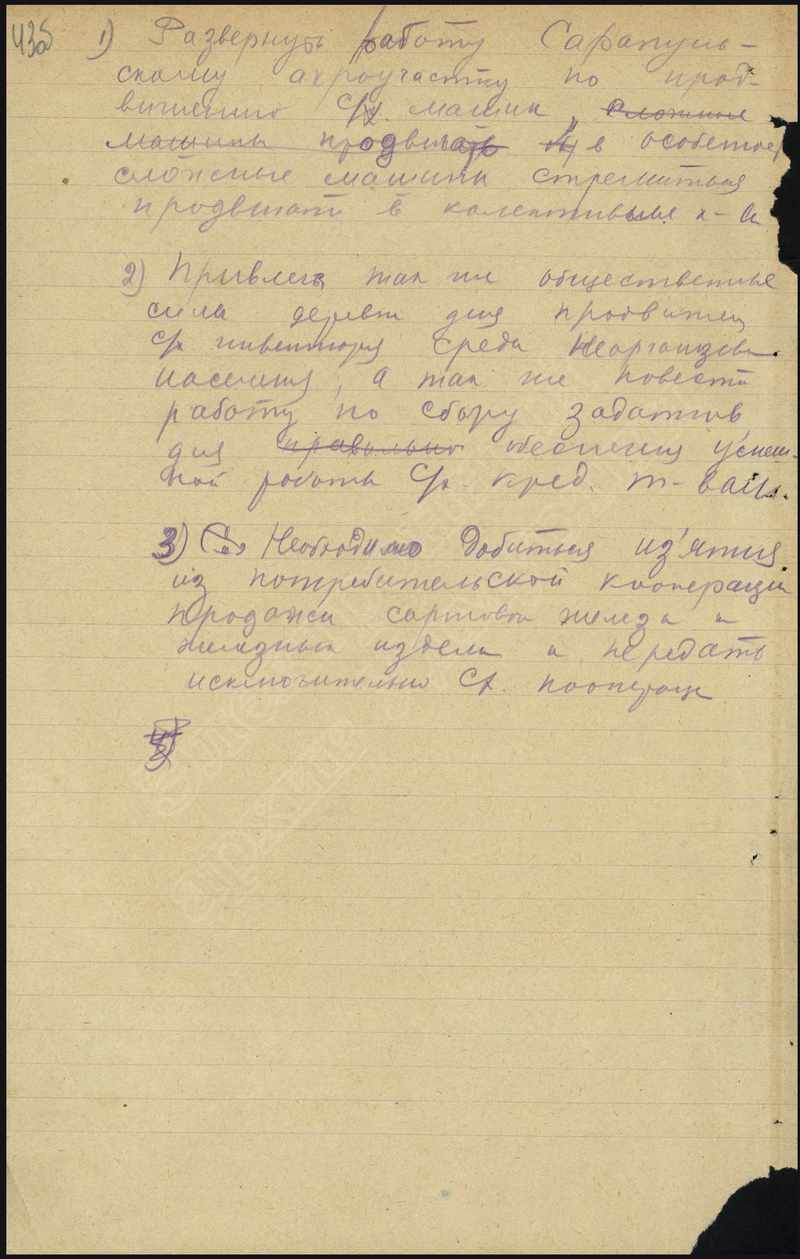 43об
1) Развернуть работу Сарапуль-
скому агроучастку по прод-
вижению с/х. машин, сложные
машины продвигать в особеност
сложные машины стремиться
продвигать в колективные х-ва
2) Привлеч так же общественные
силы деревни для продвижен
с/х инвентаря среди Неорганизован.
населения, а так же повести
работу по сбору задатков
для правильно обеспечения успеш-
ной работы с/х. кред. т-ва
3) Необходимо Добиться из'ятия
из потребительской кооперации
продажи сортовой железа и
железных издели и передать
исключительно с/х. коопераци